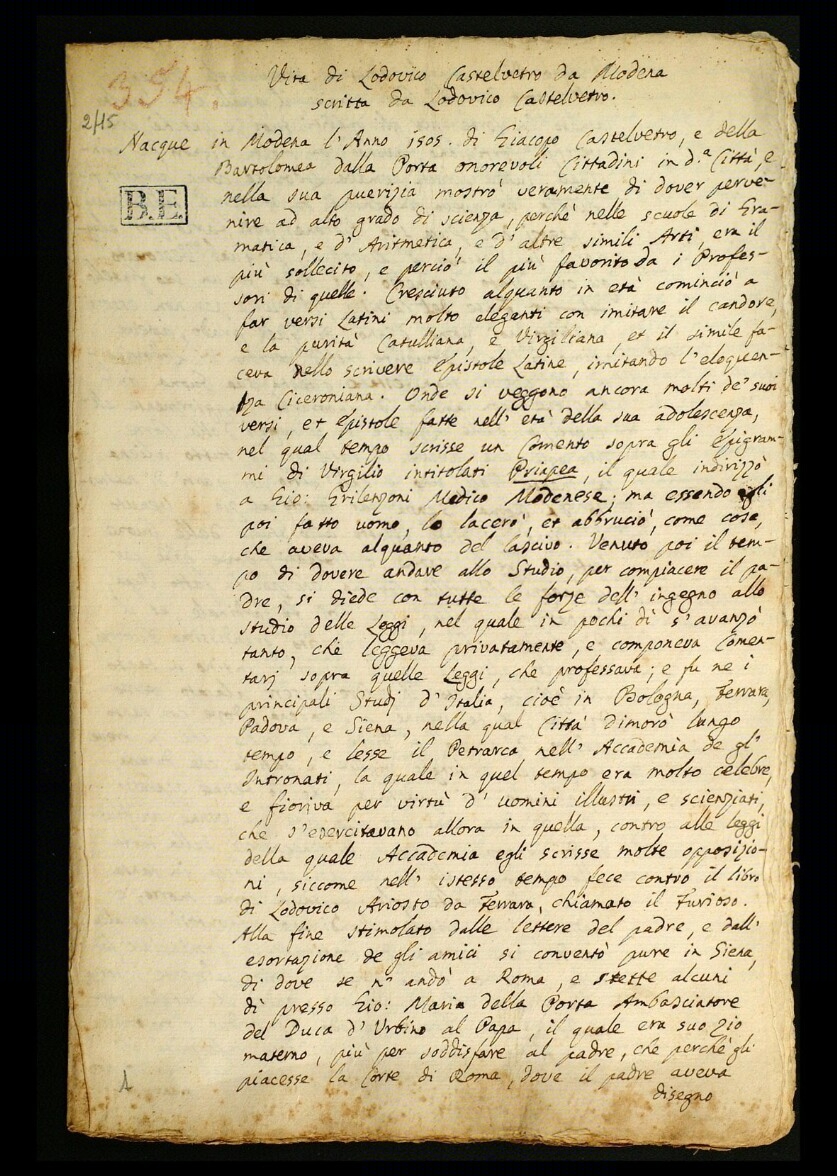 354.
2/15
Vita di Lodovico Castelvetro da Modena
scritta da Lodovico Castelvetro.
B.E.
Nacque in Modena l'Anno 1505. di Giacopo Castelvetro, e della
Bartolomea dalla Porta onorevoli Cittadini in d.ª Città, e
nella sua puerizia mostrò veramente di dover perve-
nire ad alto grado di scienza, perchè nelle scuole di Gra-
matica, e d' Aritmetica, e d' altre simili Arti era il
più sollecito, e perciò il più favorito da i Profes-
sori di quelle. Cresciuto alquanto in età cominciò a
far versi Latini molto eleganti con imitare il candore,
e la purità Catulliana, e Virgiliana, et il simile fa-
ceva nello scrivere Epistole Latine, imitando l'eloquen-
za Ciceroniana. Onde si veggono ancora molti de' suoi
versi, et Epistole fatte nell' età della sua adolescenza,
nel qual tempo scrisse un Comento sopra gli Epigram-
mi di Virgilio intitolati Priapea, il quale indirizzò
a Gio: Grilenzoni Medico Modenese; ma essendo egli
poi fatto uomo, lo lacerò, et abbruciò, come cosa,
che aveva alquanto del lascivo. Venuto poi il tem-
po di dovere andare allo Studio, per compiacere il pa-
dre, si diede con tutte le forze dell' ingegno allo
studio delle Leggi, nel quale in pochi dì s'avanzò
tanto, che leggeva privatamente, e componeva Comen-
tarj sopra quelle Leggi, che professava; e fu ne i
principali Studj d'Italia, cioè in Bologna, Ferrara,
Padova, e Siena, nella qual Città dimorò lungo
tempo, e lesse il Petrarca nell' Accademia de gl'
Intronati, la quale in quel tempo era molto celebre,
e fioriva per virtù d' uomini illustri, e scienziati,
che s'esercitavano allora in quella, contro alle leggi
della quale Accademia egli scrisse molte opposizio-
ni, siccome nell' istesso tempo fece contro il libro
di Lodovico Ariosto da Ferrara, chiamato il Furioso.
Alla fine stimolato dalle lettere del padre, e dall'
esortazione de gli amici si conventò pure in Siena,
di dove se n' andò a Roma, e stette alcuni
dì presso Gio: Maria della Porta Ambasciatore
del Duca d' Urbino al Papa, il quale era suo zio
materno, più per soddisfare al padre, che perchè gli
piacesse la Corte di Roma, dove il padre aveva
disegno
1